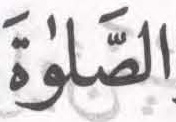 الصَّلٰوةَ